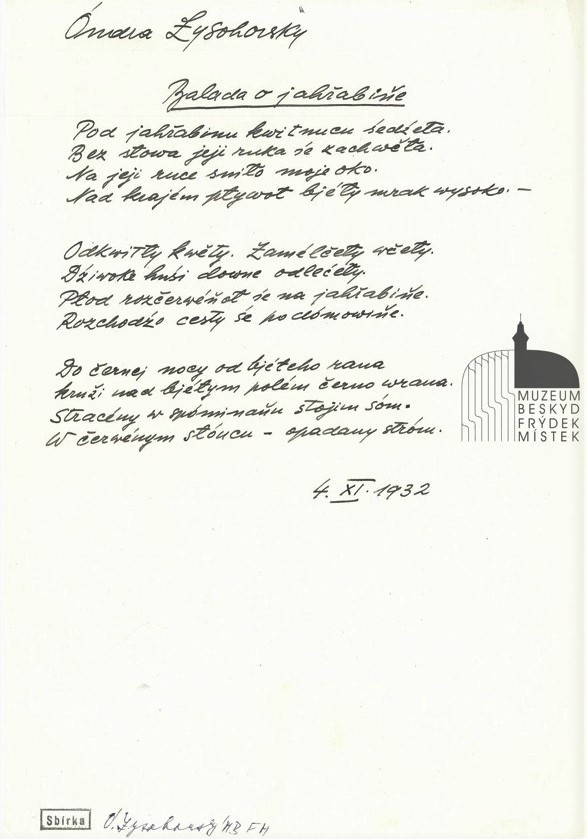 Óndra Łysohorsky
Balada o jahřabiňe
Pod jahřabinu kwitnucu śedźeła.
Bez słowa jeji ruka śe zachwěła.
Na jeji ruce sniło moje oko.
Nad krajém pływoł bjéły mrak wysoko. —
Odkwitły kwěty. Zamélčeły wčeły.
Dźiwoke huśi downe odlećéły.
Płod rozčerwéňoł śe na jahřabiňe.
Rozchodźo cesty śe po dómowiňe.
Do černej nocy od bjéłeho rana
kruži nad bjéłym polém černo wrana.
Stracény w spóminaňu stojim sóm.
W čerwénym słóncu – opadany stróm.
4. XI. 1932
MUZEUM
BESKYD
FRÝDEK
MÍSTEK
Sbírka Ó. Łysohorský MB FM